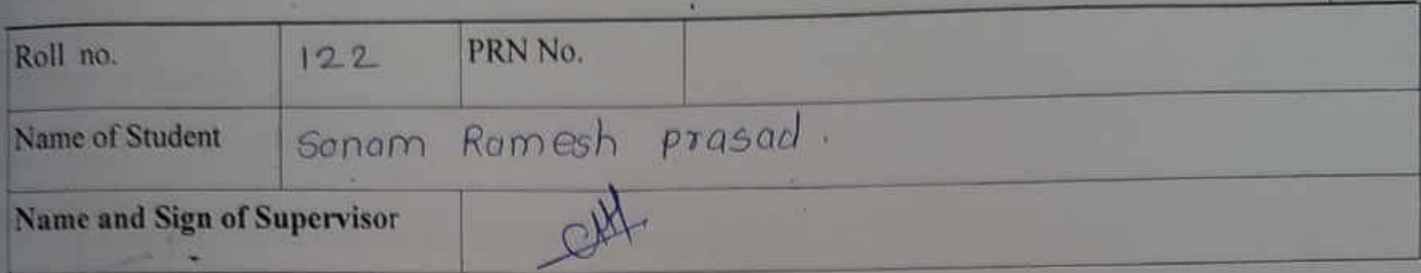 Roll no. 122 PRN No.
Name of Student Sonam Ramesh prasad.
Name and Sign of Supervisor